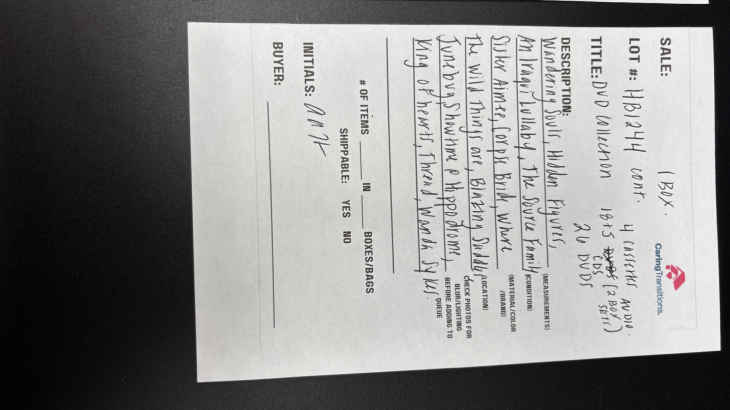 SALE: 1 BOX.
CaringTransitions.
LOT #: HB1244 cont. 4 cassettes AUDIO.
TITLE: DVD Collection 18+5 CDS (2 BOX SETS)
26 DVDS
DESCRIPTION:
(MEASUREMENTS)
Wandering Souls, Hidden Figures,
(CONDITION)
An Iraqi Lullaby, The Source Family
(MATERIAL/COLOR
/BRAND)
Sister Aimee, Corpse Bride, Where
(LOCATION)
The Wild Things are, Blazing Saddles
CHECK PHOTOS FOR
BLUR/LIGHTING
BEFORE ADDING TO
QUEUE
Junebug, Showtime @ Hippodrome,
King of hearts, Thread, Wanda Sykes.
# OF ITEMS ____ IN ____ BOXES/BAGS
SHIPPABLE: YES NO
INITIALS:
BUYER: